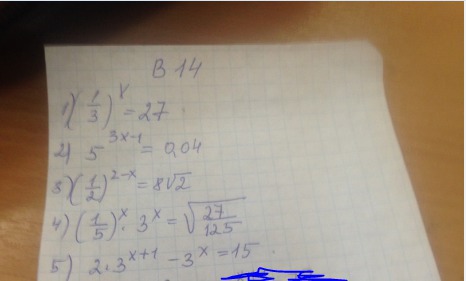 В 14
1) (1/3)^x = 27
2) 5^(3x-1) = 0,04
3) (1/2)^(2-x) = 8√2
4) (1/5)^x · 3^x = √(27/125)
5) 2·3^(x+1) - 3^x = 15